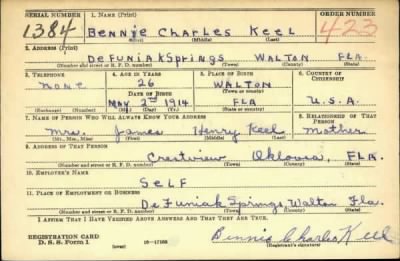 SERIAL NUMBER 1. NAME (Print) ORDER NUMBER
1384 Bennie Charles Keel 423
(First) (Middle) (Last)
2. ADDRESS (Print)
DeFuniak Springs Walton Fla.
(Number and street or R. F. D. number) (Town) (County) (State)
3. TELEPHONE 4. AGE IN YEARS 5. PLACE OF BIRTH 6. COUNTRY OF CITIZENSHIP
none 26 Walton
DATE OF BIRTH (Town or county)
May 2nd 1914 Fla U.S.A.
(Mo.) (Day) (Yr.) (State or country)
7. NAME OF PERSON WHO WILL ALWAYS KNOW YOUR ADDRESS 8. RELATIONSHIP OF THAT PERSON
Mrs. James Henry Keel Mother
(Mr., Mrs., Miss) (First) (Middle) (Last)
9. ADDRESS OF THAT PERSON
Crestview Okloosa, Fla.
(Number and street or R. F. D. number) (Town) (County) (State)
10. EMPLOYER'S NAME
Self
11. PLACE OF EMPLOYMENT OR BUSINESS
DeFuniak Springs, Walton Fla.
(Number and street or R. F. D. number) (Town) (County) (State)
I AFFIRM THAT I HAVE VERIFIED ABOVE ANSWERS AND THAT THEY ARE TRUE.
REGISTRATION CARD
D. S. S. Form 1 (over) 16—17105 Bennie Charles Keel
(Registrant's signature)